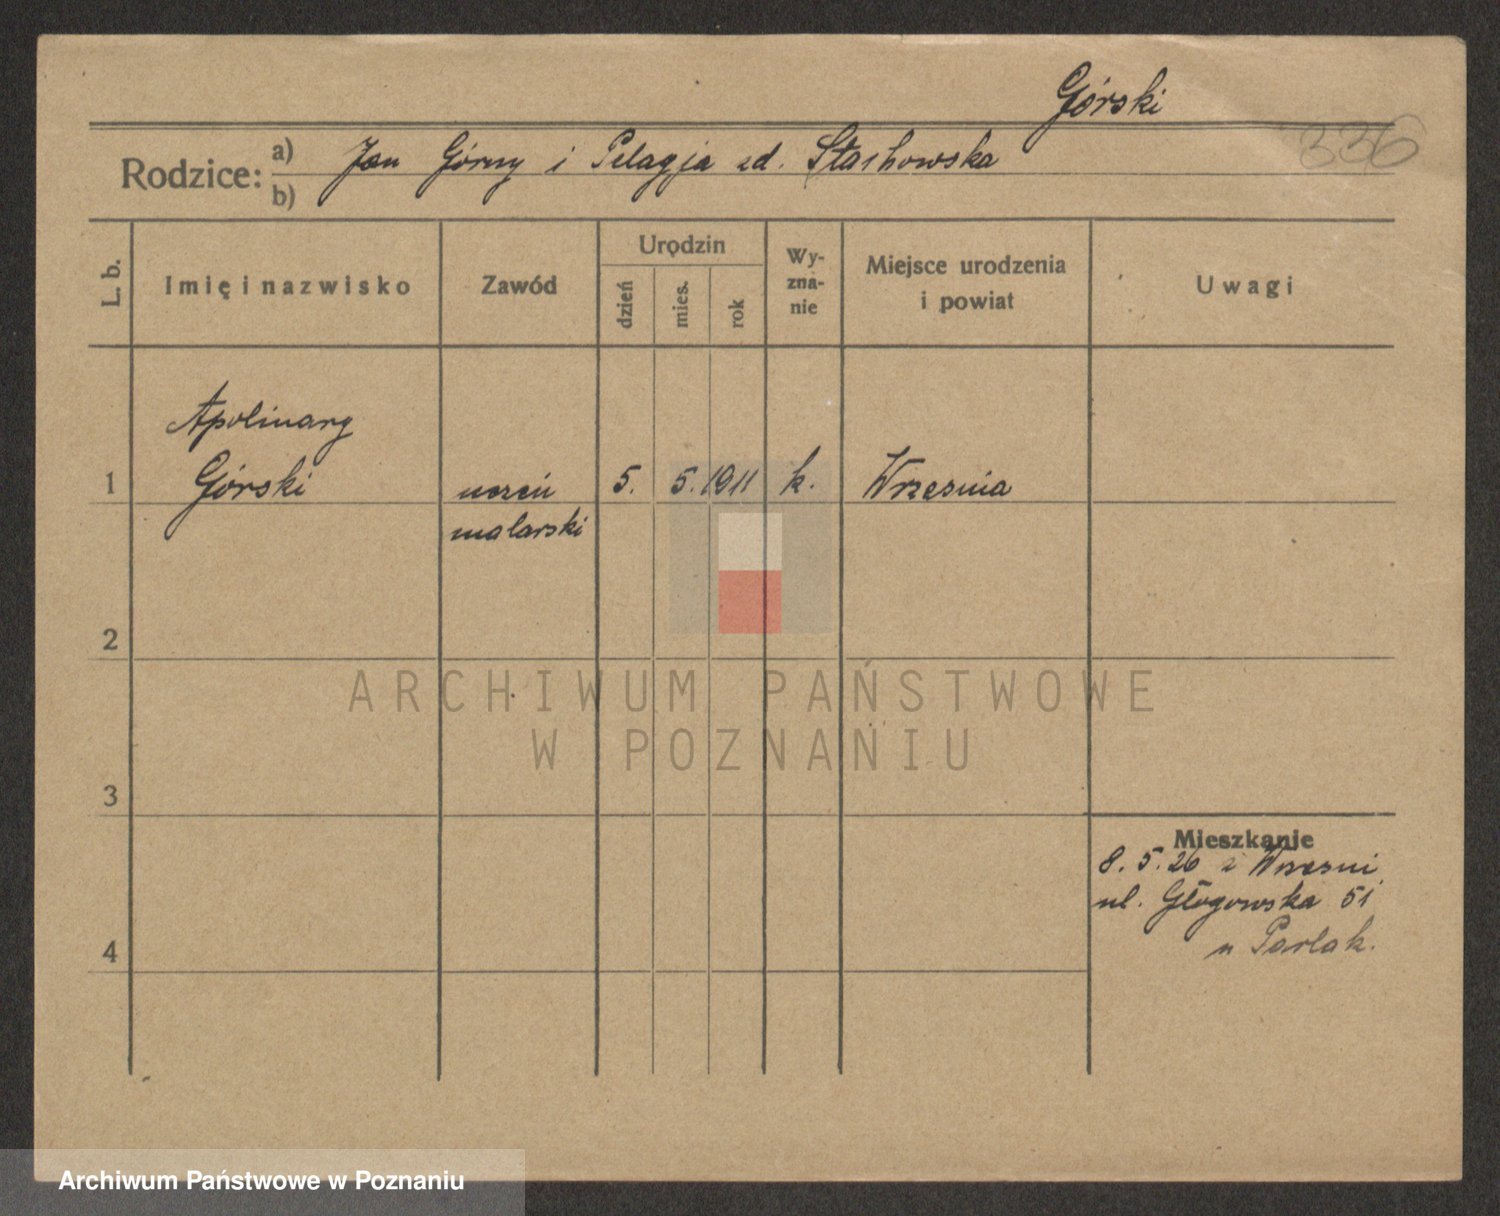 Górski
336
Rodzice: a) Jan Górny i Pelagja zd. Stachowska
b)
L. b. Imię i nazwisko Zawód Urodzin dzień mies. rok Wy-zna-nie Miejsce urodzenia i powiat Uwagi
Apolinary
1 Górski uczeń 5. 5. 1911 k. Września
malarski
2
ARCHIWUM PAŃSTWOWE
W POZNANIU
3
Mieszkanie
8. 5. 26 z Wrześni
ul. Głogowska 51
u Parlak.
4
Archiwum Państwowe w Poznaniu